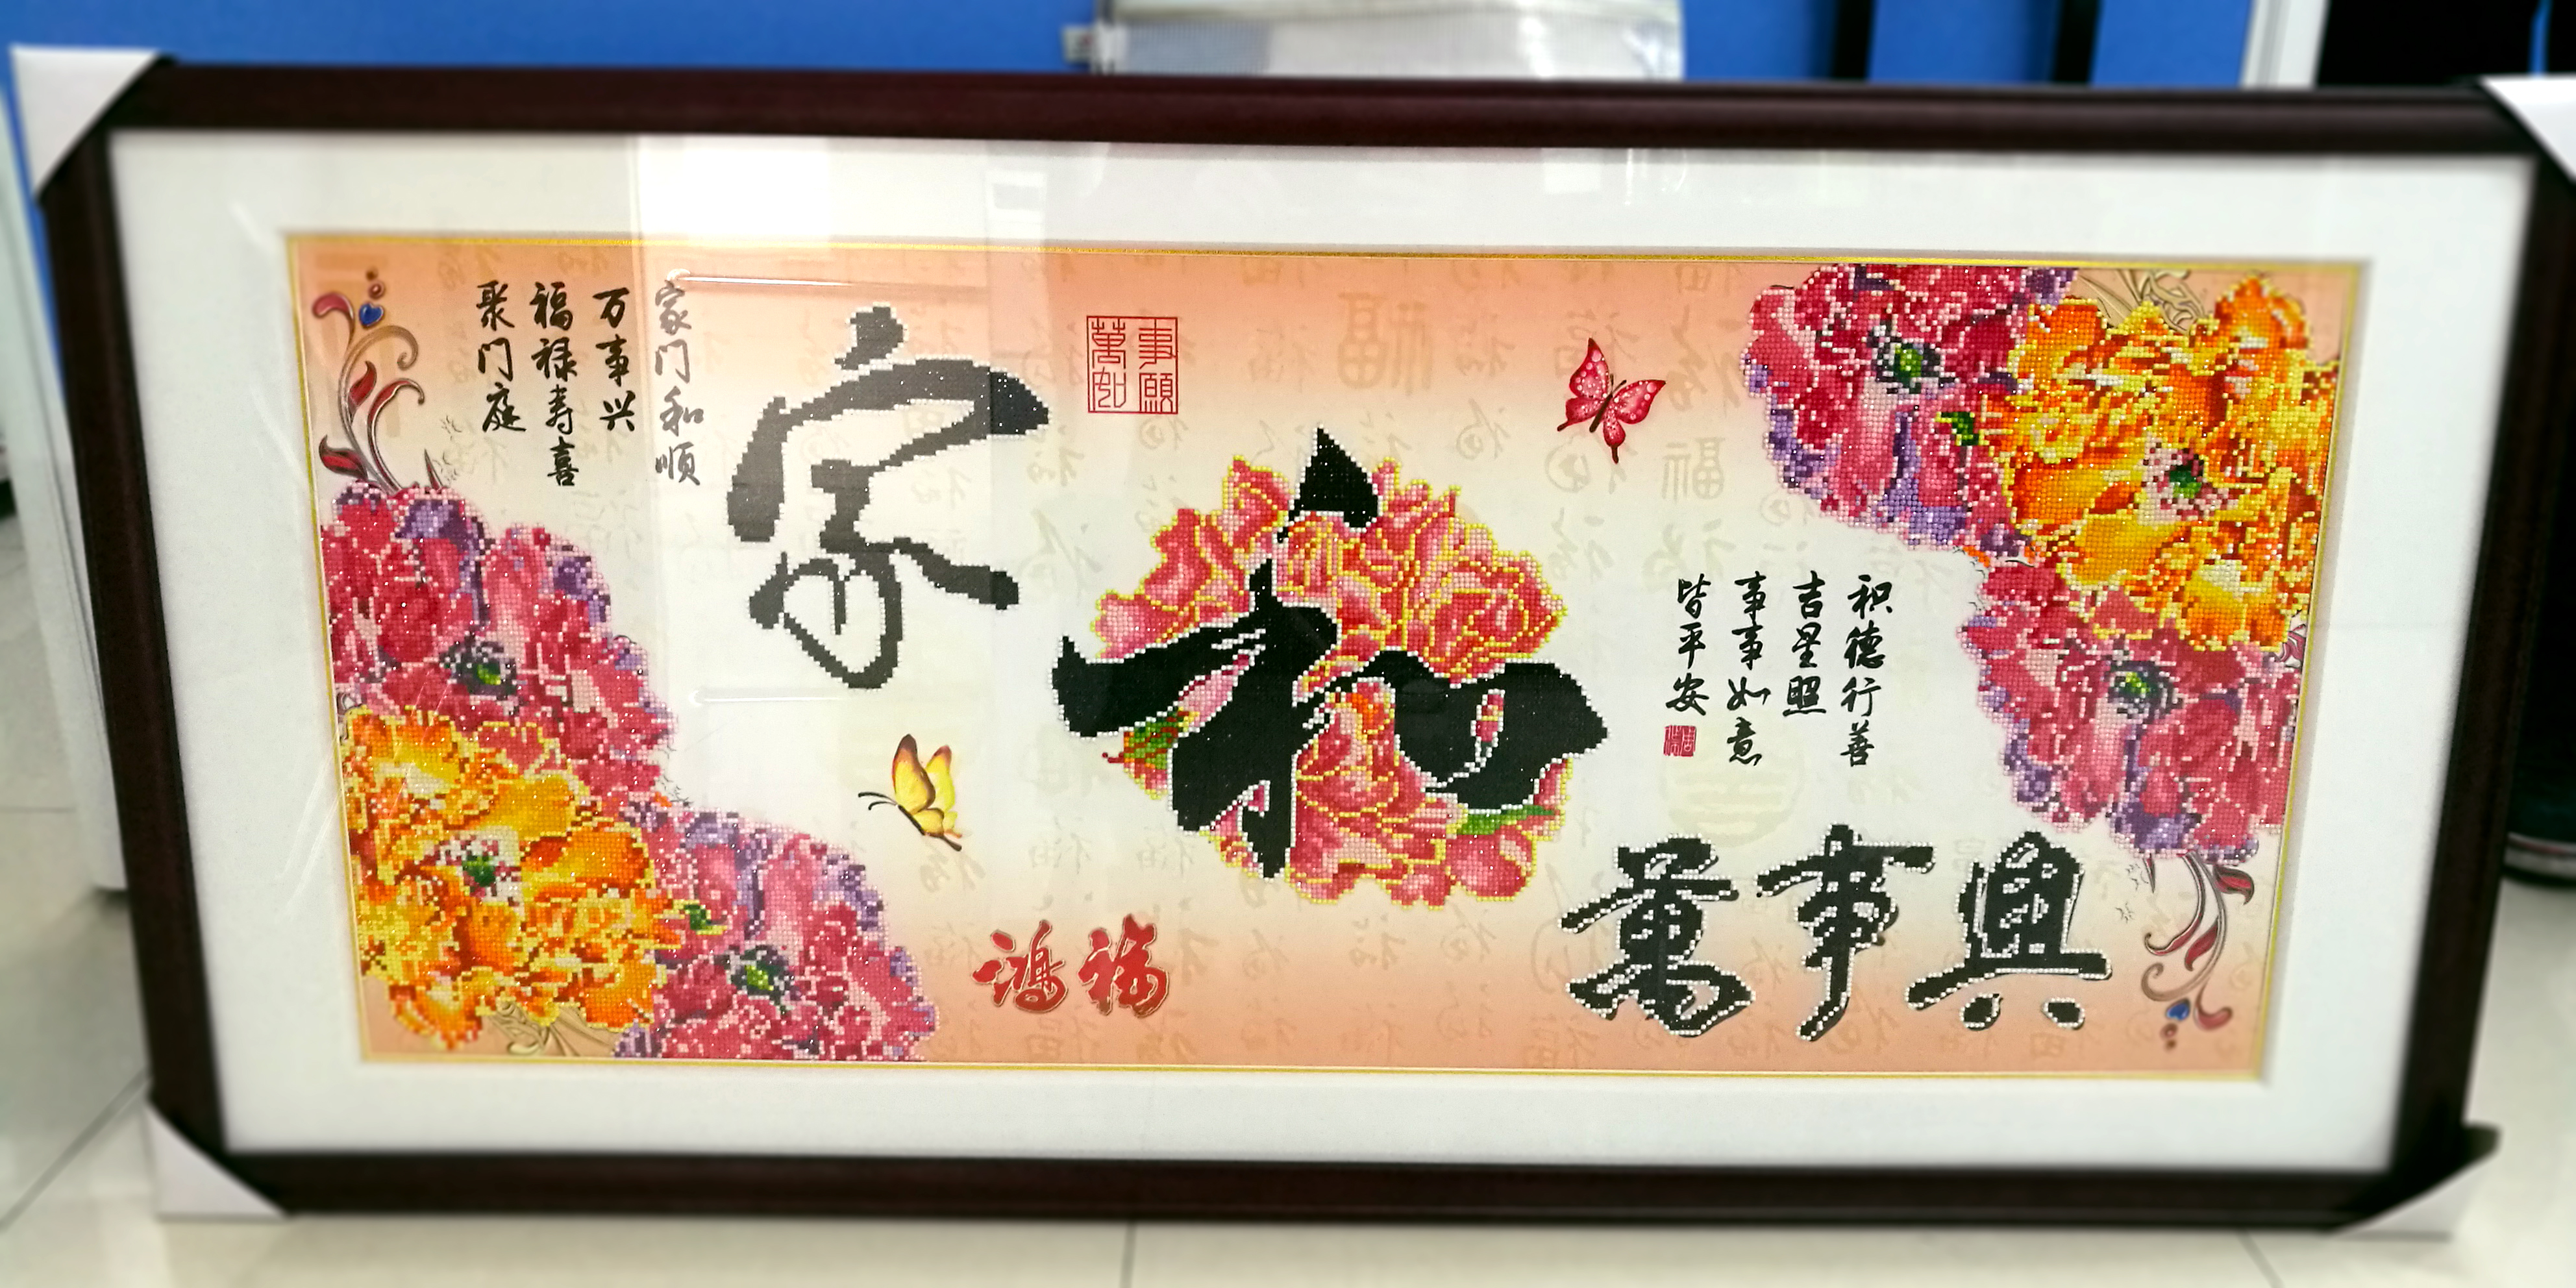 家和萬事興
家门和顺
万事兴
福禄寿喜
聚门庭
事願
萬如
积德行善
吉星照
事事如意
皆平安
鸿福